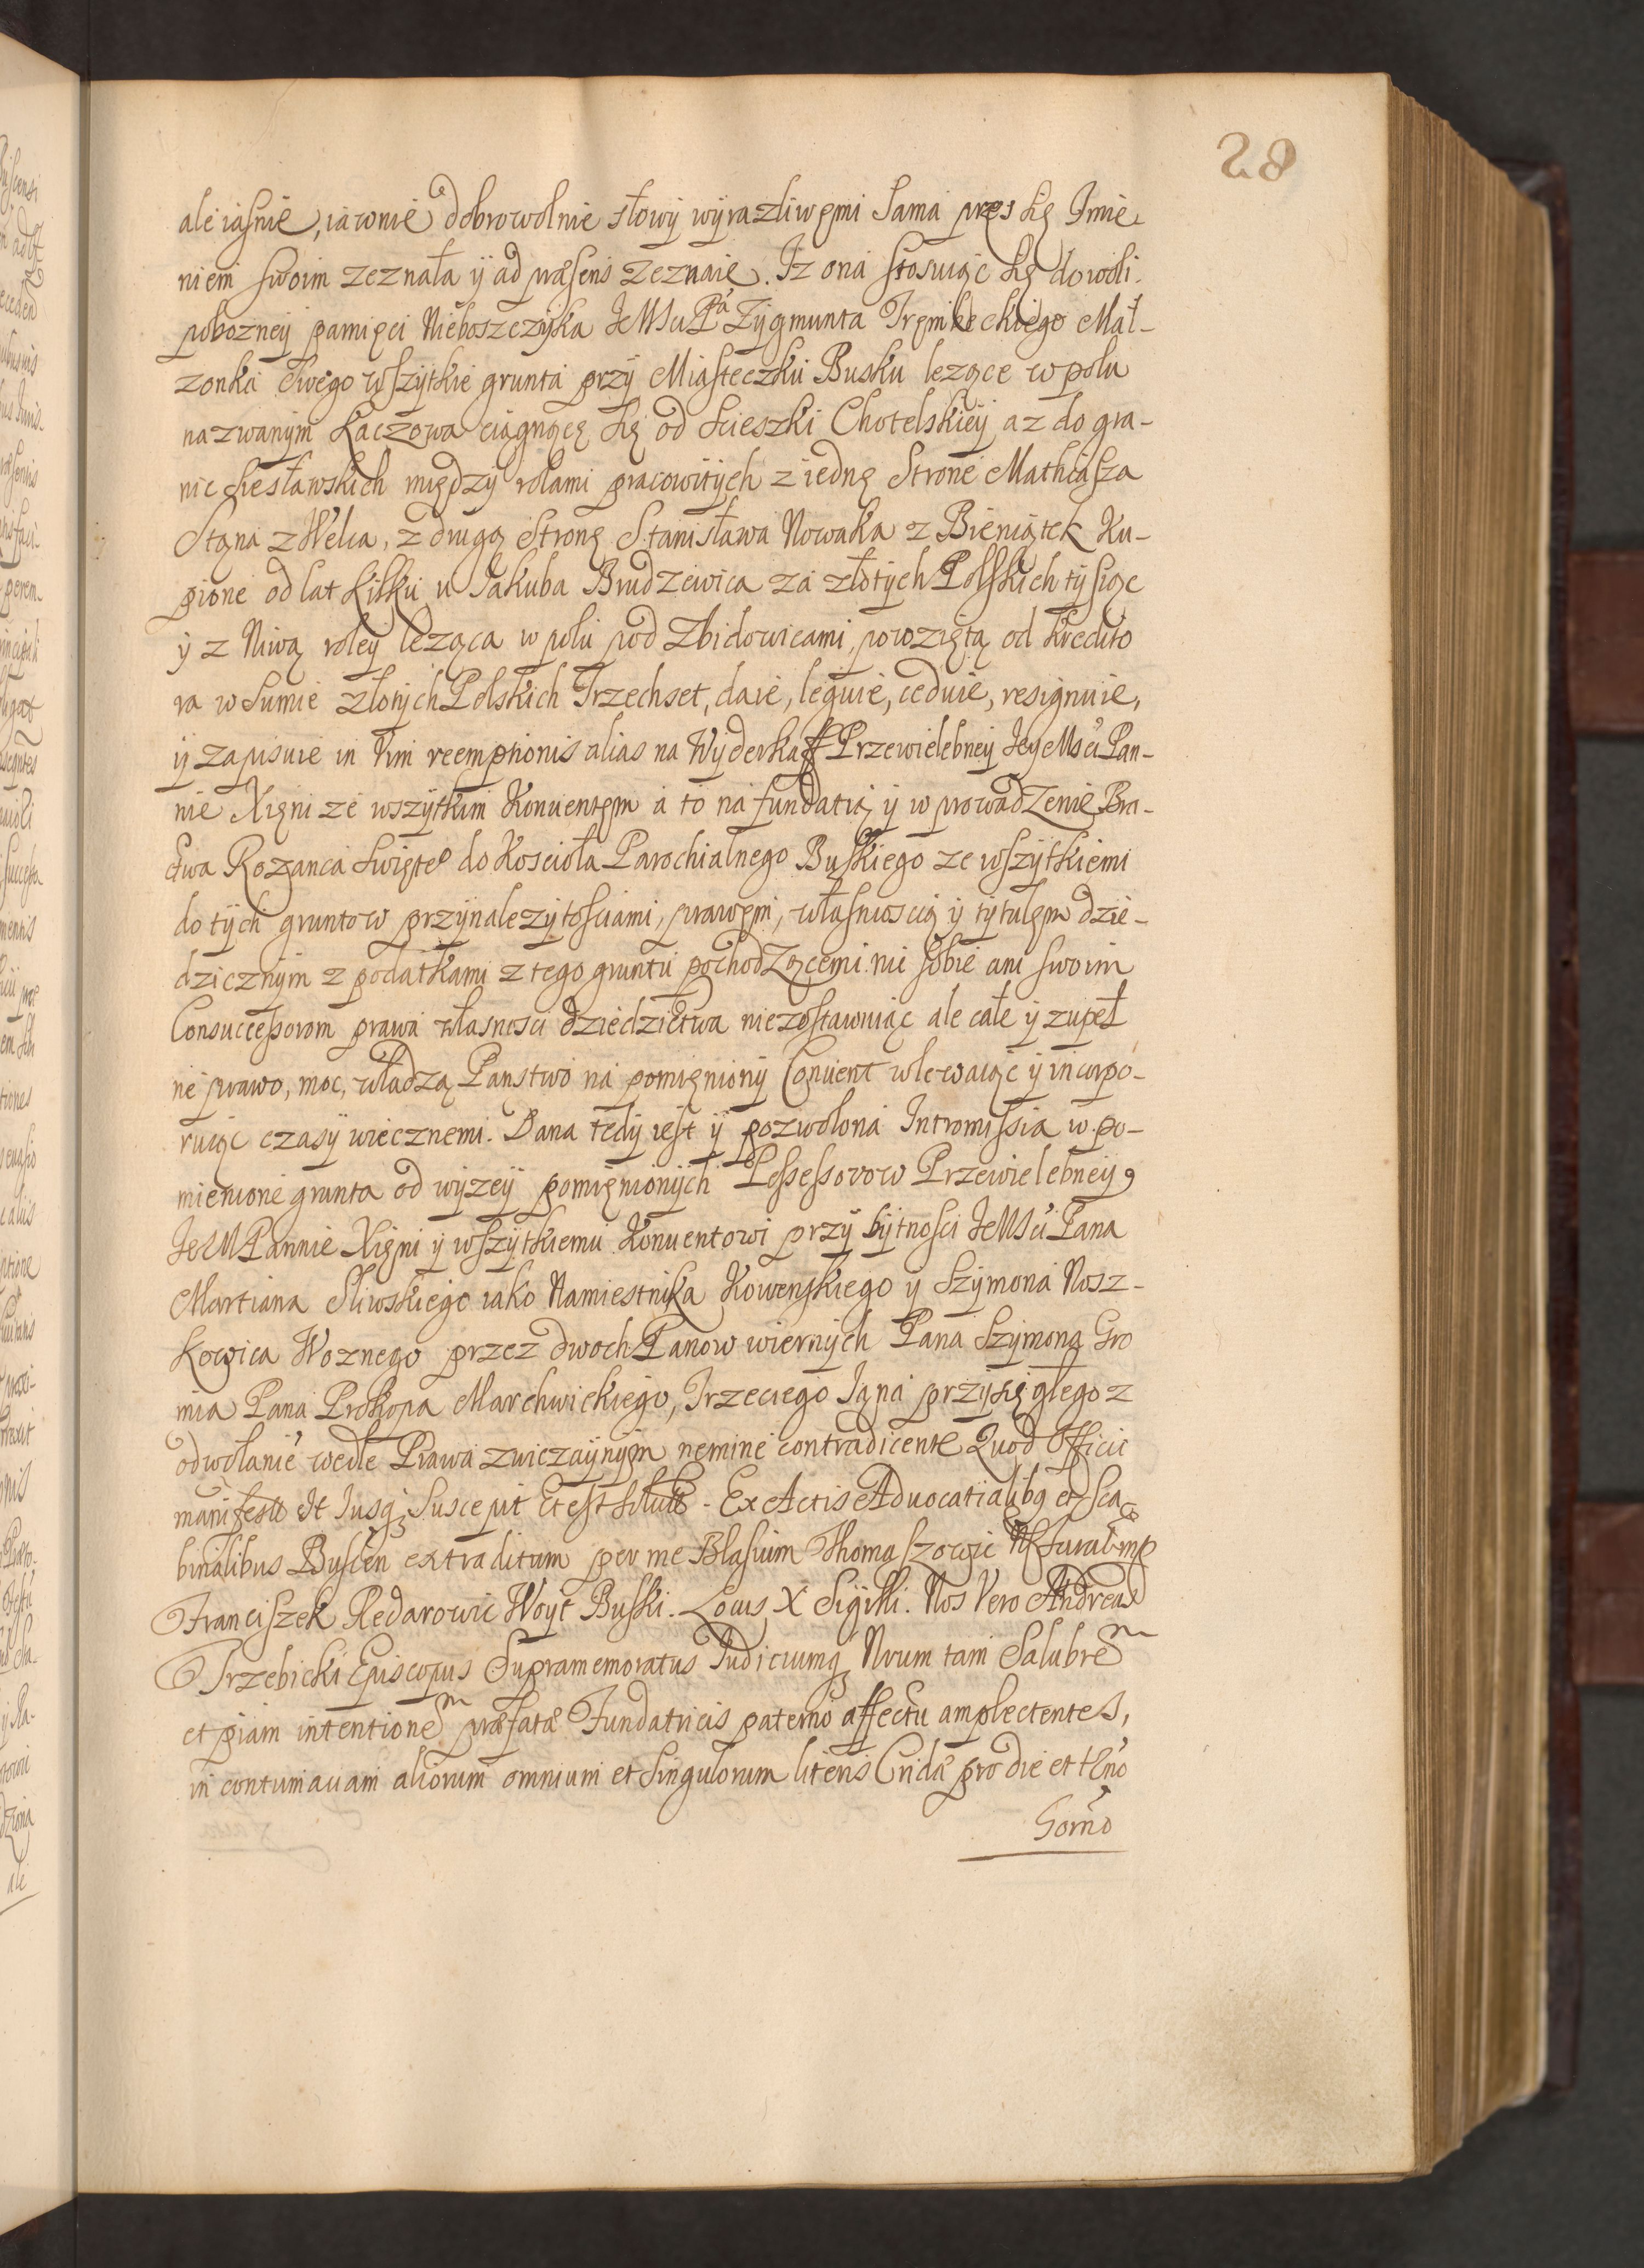 28
ale iaśnie, iawnie dobrowolnie słowy wyrazliwęmi Sama przes Się Imie
niem swoim zeznała ÿ ad præsens zeznaie. Iz ona stosuiąc się do woli.
pobozney pamięci Nieboszczyka JeMSci Pa Zygmunta Tręmbeckiego Mał-
zonka Swego wszytkie grunta przy Miasteczku Busku lezące w polu
nazwanym Kaczowa ciągnącę Się od Scieszki Chotelskiey az do gra-
nic Siesławskich między rolami pracowitych z iednę Strone Mathiasza
Stąna z Welca, z drugą Stronę Stanisława Nowaka z Bieniątek Ku-
pione od lat kilku u Jakuba Brudzewica za złotych Polskich tysiąc
y z Niwą roley lezącą w polu pod Zbidowicami, powziętą od Kredito
ra w Sumie złotych Polskich Trzechset, daie, leguie, ceduie, resignuie,
ÿ zapisuie in Vim reemptionis alias na Wyderkaff Przewielebney JeyMsci Pan-
nie Xięni ze wszytkim Konuentęm a to na fundatią y w prowadzenie Bra-
ctwa Rozanca Swięteo do Kościoła Parochialnego Buskiego ze wszytkiemi
do tych gruntow przynalezytościami, prawęmi, własnością y tytulęm dzie-
dzicznym z podatkami z tego gruntu pochodzącemi nic sobie ani swoim
Consuccessorom prawa własności dziedzictwa niezostawuiąc ale całe y zupeł
ne prawo, moc, władzą Panstwo na pomięniony Conuent wlewaiąc y incorpo-
ruiąc czasy wiecznemi. Dana tedy iest y pozwolona Intromissia w po-
mienione grunta od wyzey pomięnionych Possessorow Przewielebney
JeMPannie Xięni y wszytkiemu Konuentowi przy bytności JeMSci Pana
Martiana Sliwskiego iako Namiestnika Kowenskiego y Szymona Nosz-
kowica Woznego przez dwoch Panow wiernych Pana Szymona Gro
mia Pana Prokopa Marchwickiego, Trzeciego Jana przysięgłego z
odwołanie wedle Prawa zwiczaynym nemine contradicente Quod Officiū
manifeste Et Jusq; Suscepit Et est Solutū - Ex Actis Aduocatialibq et Sca
binalibus Buscen extraditum per me Blasium Thomaszowic Juratū mp
Franciszek Redarowic Woyt Buski. Locus X Sigilli. Nos Vero Andreas
Trzebicki Episcopus Supramemoratus Judiciumq Nrum tam Salubrem
et piam intentionem præfatæ Fundatricis paterno affectu amplectentes,
in contumaciam aliorum omnium et Singulorum literis Cridæ pro die et tēno
Hornō